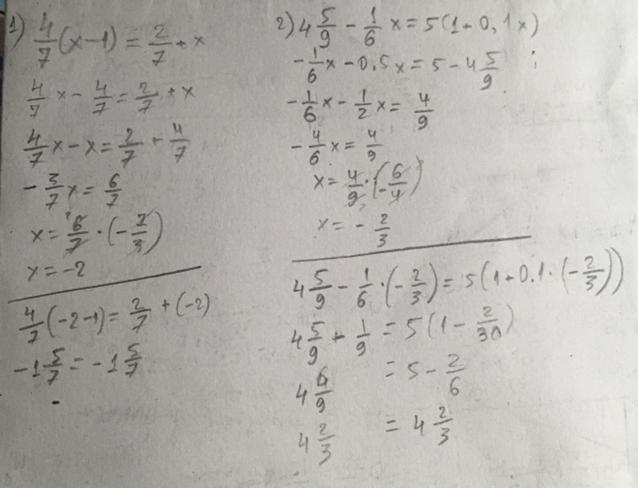 1) 4/7 (x-1) = 2/7 + x
4/7 x - 4/7 = 2/7 + x
4/7 x - x = 2/7 + 4/7
- 3/7 x = 6/7
x = 6/7 · (- 7/3)
x = -2
4/7 (-2-1) = 2/7 + (-2)
-1 5/7 = -1 5/7
2) 4 5/9 - 1/6 x = 5(1+0,1x)
- 1/6 x - 0,5x = 5 - 4 5/9
- 1/6 x - 1/2 x = 4/9
- 4/6 x = 4/9
x = 4/9 · (- 6/4)
x = - 2/3
4 5/9 - 1/6 · (- 2/3) = 5(1+0.1 · (- 2/3))
4 5/9 + 1/9 = 5(1 - 2/30)
4 6/9 = 5 - 2/6
4 2/3 = 4 2/3